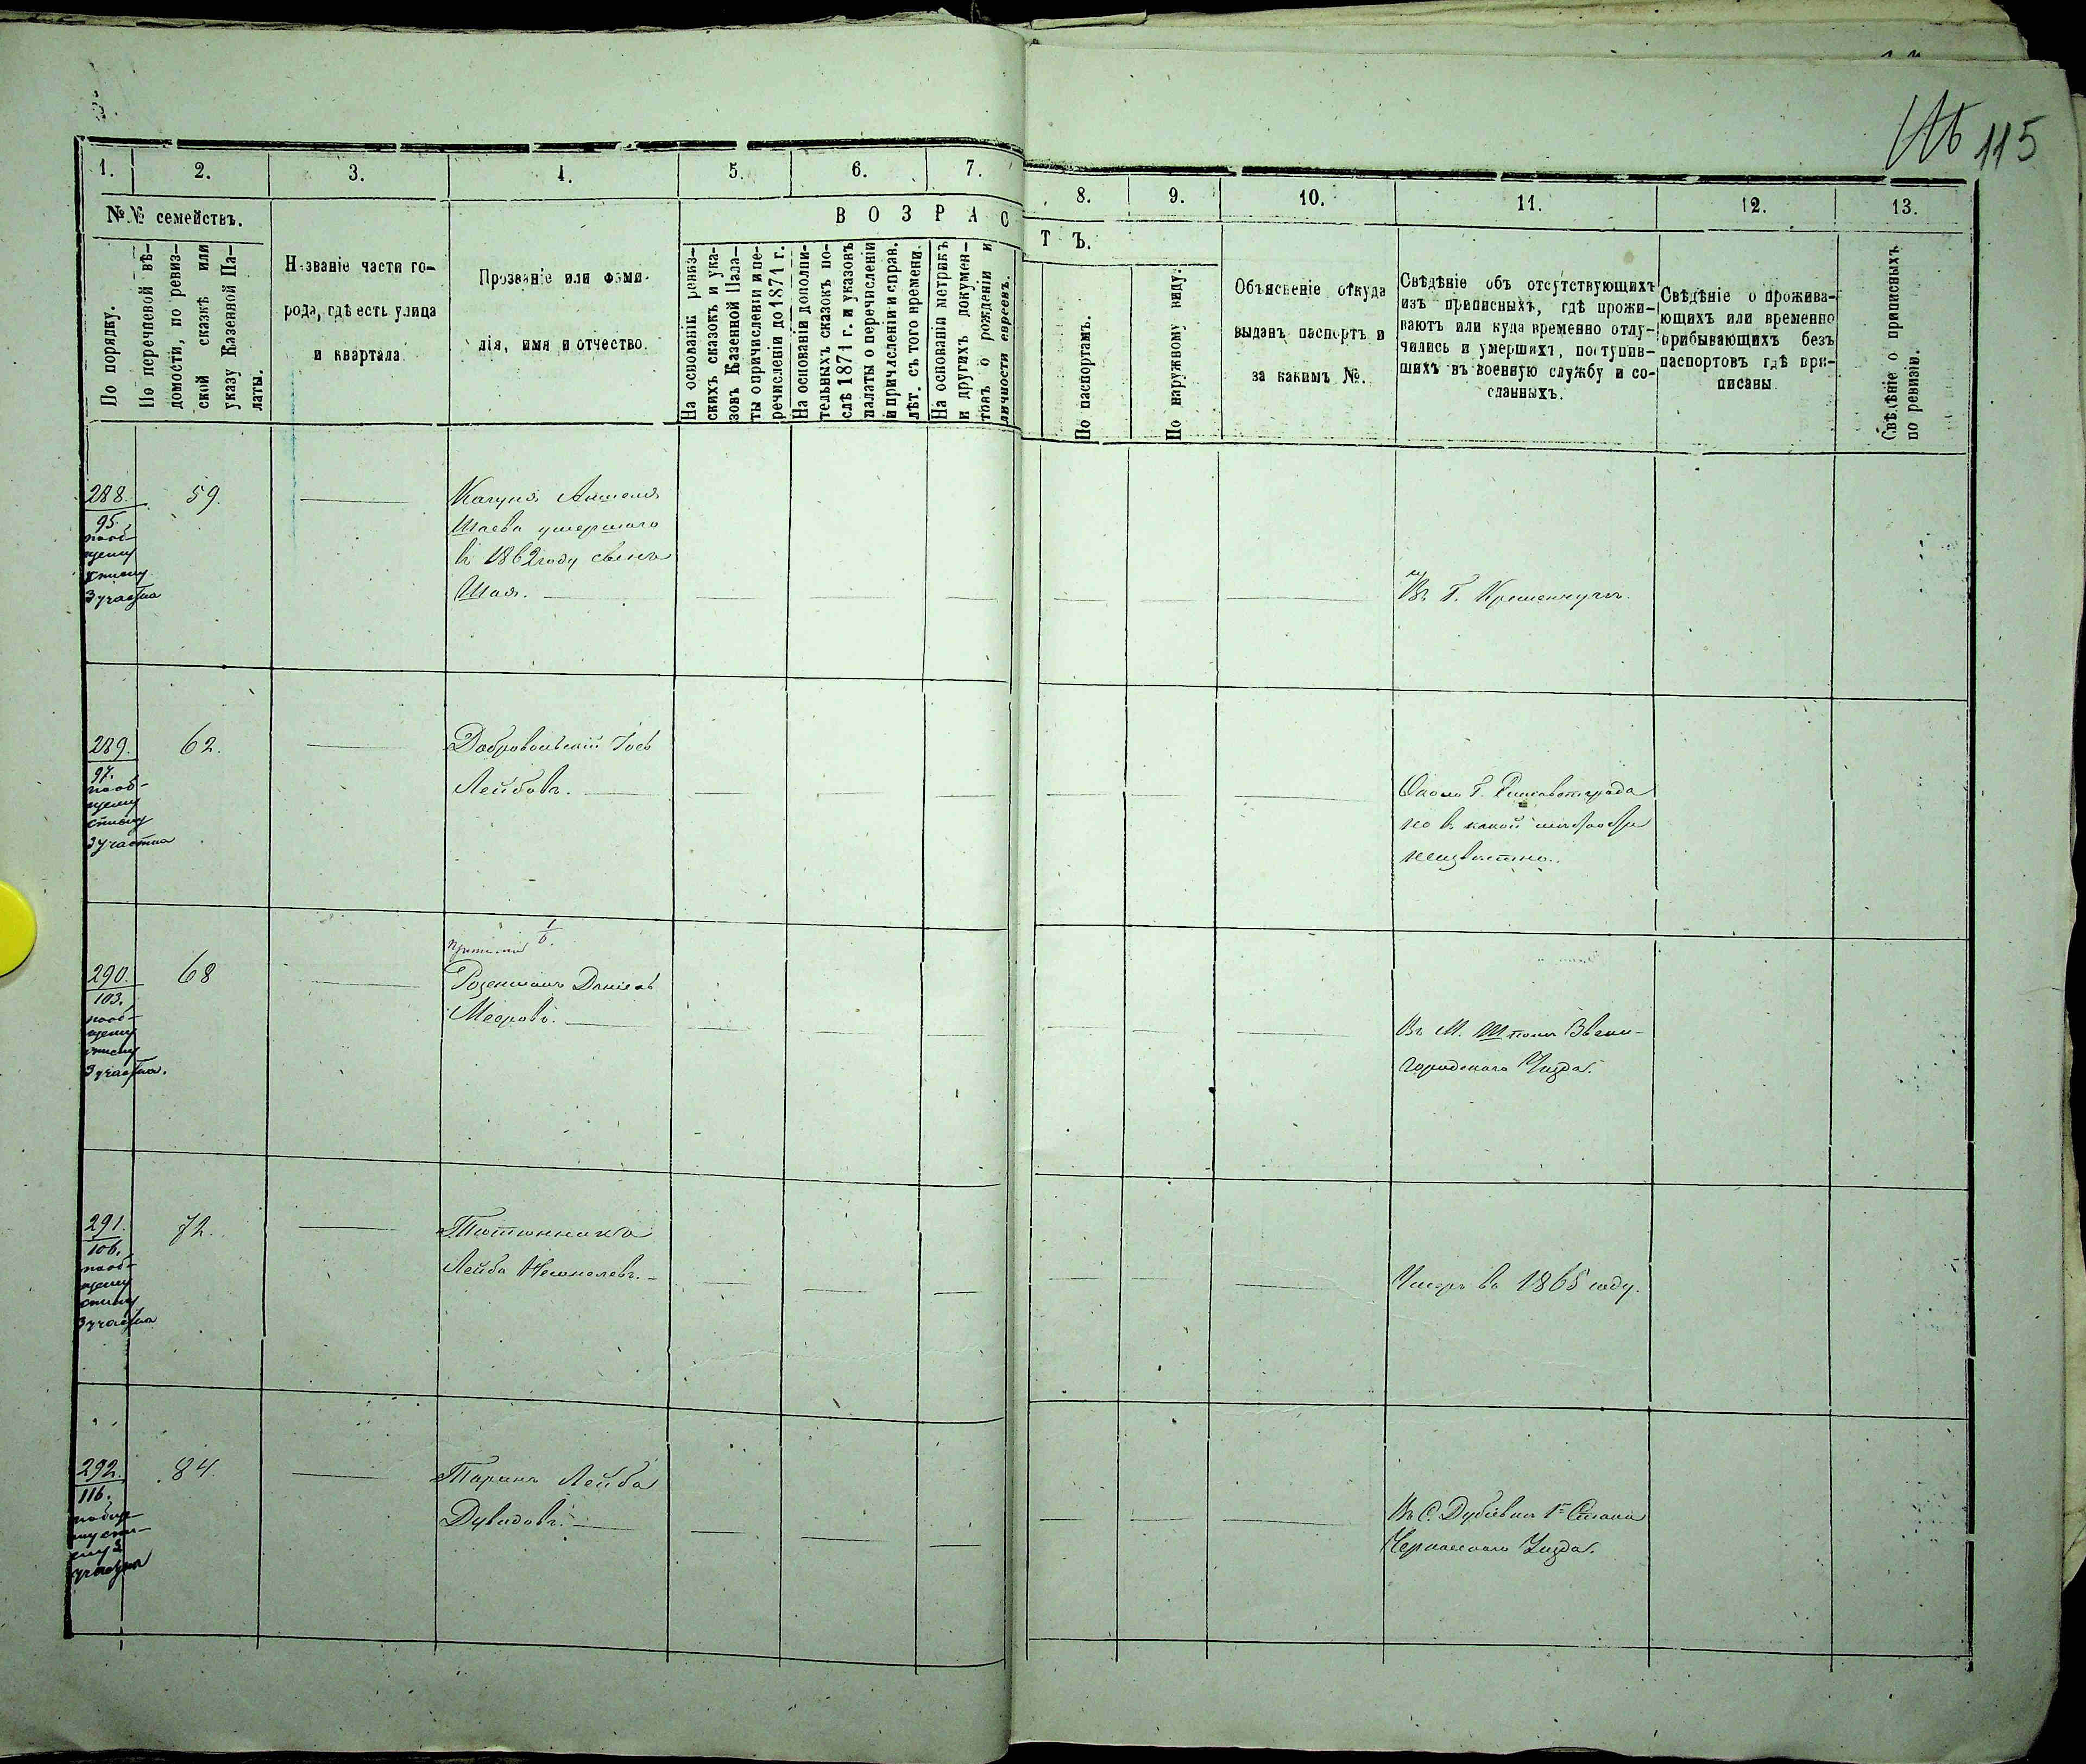 115
1. 2. 3. 4. 5. 6. 7. 8. 9. 10. 11. 12. 13.
№№ семействъ.
По порядку.
По перечневой вѣ-
домости, по ревиз-
ской сказкѣ или
указу Казенной Па-
латы.
Названіе части го-
рода, гдѣ есть улица
и квартала.
Прозваніе или фами-
лія, имя и отчество.
ВОЗРАСТЪ.
На основаніи ревиз-
скихъ сказокъ и ука-
зовъ Казенной Пала-
ты о причисленіи и пе-
речисленіи до 1871 г.
На основаніи дополни-
тельныхъ сказокъ по-
слѣ 1871 г. и указовъ
палаты о перечисленіи
и причисленіи и справ.
лѣт. съ того времени.
На основаніи метрикъ
и другихъ докумен-
товъ о рожденіи и
личности евреевъ.
По паспортамъ.
По наружному виду.
Объясненіе откуда
выданъ паспортъ и
за какимъ №.
Свѣдѣніе объ отсутствующихъ
изъ приписныхъ, гдѣ прожи-
ваютъ или куда временно отлу-
чились и умершихъ, поступив-
шихъ въ военную службу и со-
сланныхъ.
Свѣдѣніе о прожива-
ющихъ или временно
прибывающихъ безъ
паспортовъ гдѣ при-
писаны.
Свѣдѣніе о приписныхъ
по ревизіи.
288.
95.
по об-
щему
списку
3 участка
59.
Шаева умершаго
въ 1862 году сынъ
Шая.
Въ Г. Кременчугѣ.
289.
97.
по об-
щему
списку
3 участка
62.
Добровольскій Іось
Лейбовъ.
Около Г. Елисаветграда
но въ какой мѣстности
неизвѣстно.
290.
103.
по об-
щему
списку
3 участка.
68
Розенманъ Даніель
Мееровъ.
Въ М. Шполи Звени-
городскаго Уѣзда.
291.
106.
по об-
щему
списку
3 участка
72.
Тютюнникъ
Лейба
Умеръ въ 1865 году.
292.
116.
по общ-
ему спи-
ску 3
участка
84.
Таранъ Лейба
Дувидовъ.
Въ С. Дубіевки 1го Стана
Черкасскаго Уѣзда.